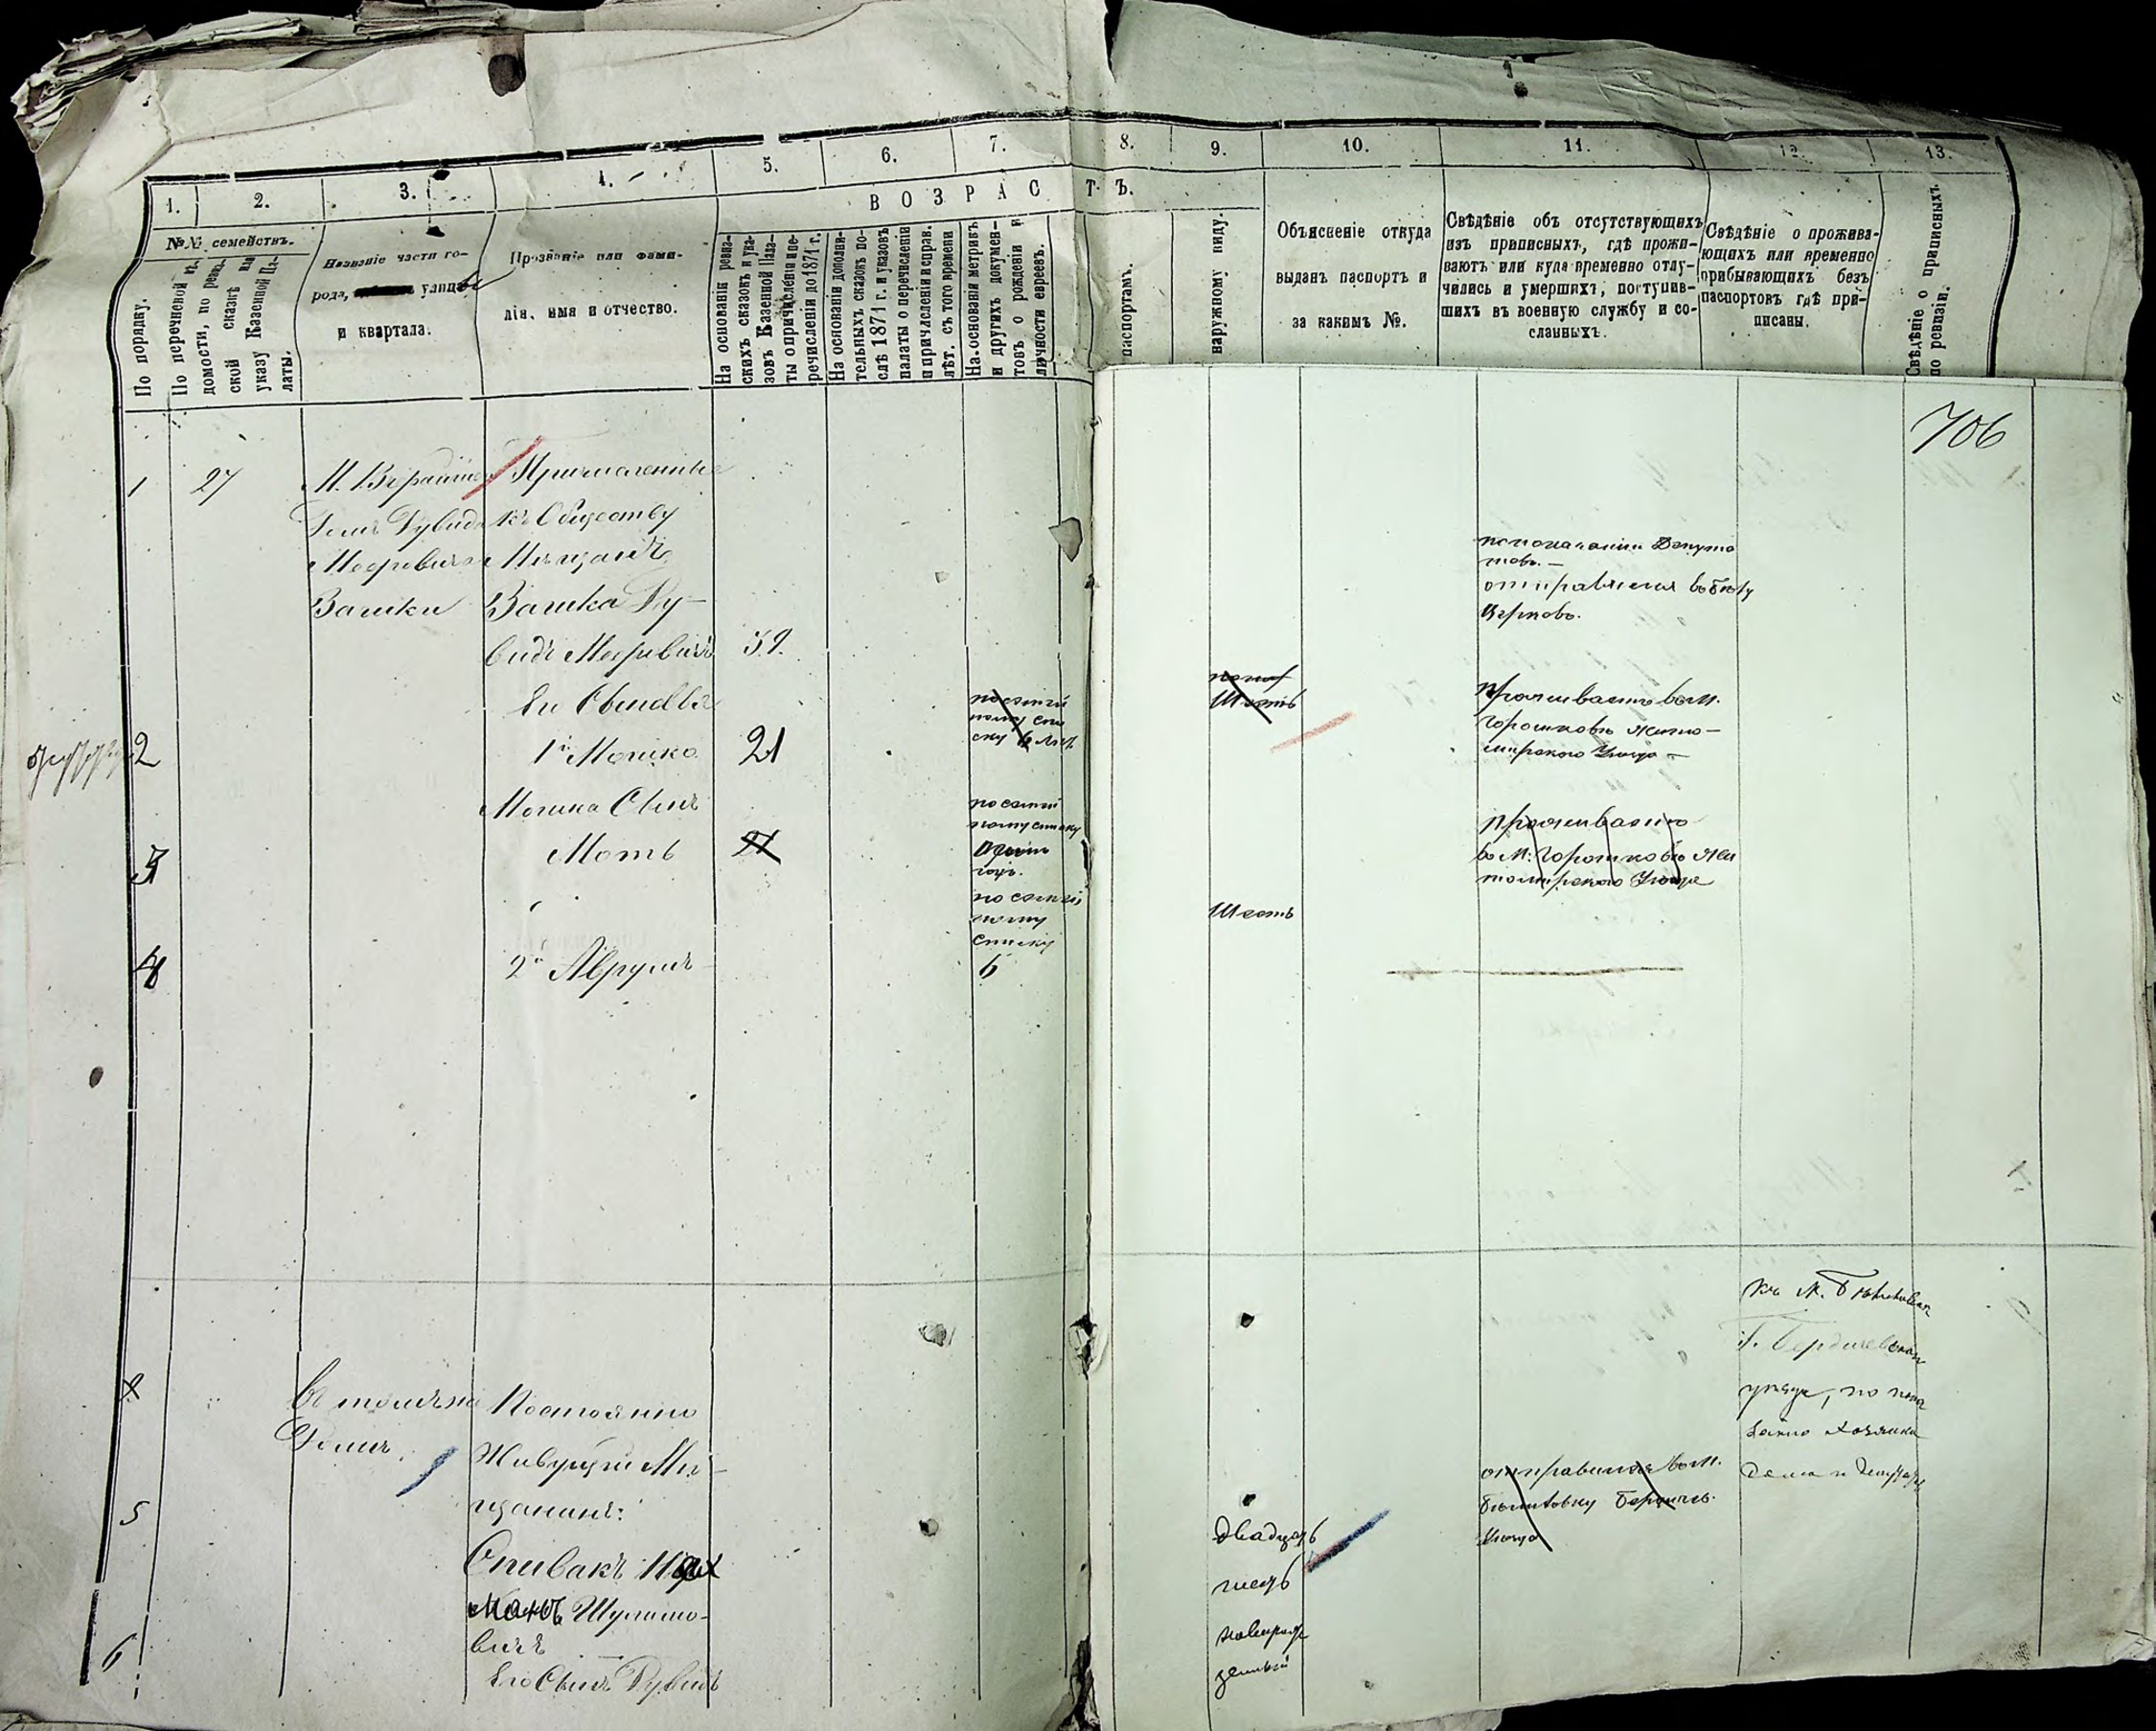 1.
2.
3.
4.
5.
6.
7.
8.
9.
10.
11.
12.
13.
ВОЗРАСТЪ.
№№ семействъ.
По порядку.
По перечневой вѣ-
домости, по реви-
ской сказкѣ или
указу Казенной Па-
латы.
Названіе части го-
рода, улицы
и квартала.
Прозваніе или фами-
лія, имя и отчество.
На основаніи реви-
скихъ сказокъ и ука-
зовъ Казенной Пала-
ты о причисленіи и пе-
речисленіи до 1871 г.
На основаніи дополни-
тельныхъ сказокъ по-
слѣ 1871 г. и указовъ
палаты о перечисленіи
и причисленіи и справ.
лѣт. съ того времени
На основаніи метрикъ
и другихъ докумен-
товъ о рожденіи и
личности евреевъ.
паспортамъ.
наружному виду.
Объясненіе откуда
выданъ паспортъ и
за какимъ №.
Свѣдѣніе объ отсутствующихъ
изъ приписныхъ, гдѣ прожи-
ваютъ или куда временно отлу-
чились и умершихъ, поступив-
шихъ въ военную службу и со-
сланныхъ.
Свѣдѣніе о прожива-
ющихъ или временно
прибывающихъ безъ
паспортовъ гдѣ при-
писаны.
Свѣдѣніе о приписныхъ
по ревизіи.
706
1
27
Домъ Дувида
Мееровича
Вашки
Причисленные
къ Обществу
Мѣщанъ
Вашка Ду-
видъ Мееровичъ
59
отправился въ Бѣлу
Церковь.
Его Сыновья
2
1й Мошко
21
по семей
ному спи
ску 6 лѣтъ
Шесть
проживаетъ въ м.
Горошковѣ Жито-
мирскаго Уѣзда
Мошка Сынъ
3
Моть
21
по семей
ному списку
Одинъ
годъ.
проживаетъ
въ М. Горошковѣ Жи
томирскаго Уѣзда
4
2й Аврумъ
по семей
ному
списку
6
Шесть
Въ томъ же
Домѣ
Постоянно
Живущій Мѣ-
щанинъ:
5
Спивакъ Нах
манъ Шулимо-
вичъ
Двадцать
шесть
отправился въ м.
Уѣзда
къ М.
Бердичевскаго
уѣзда, по пока
занію хозяина
дома и депутата
6
Его Сынъ Дувидъ
новорож
денный